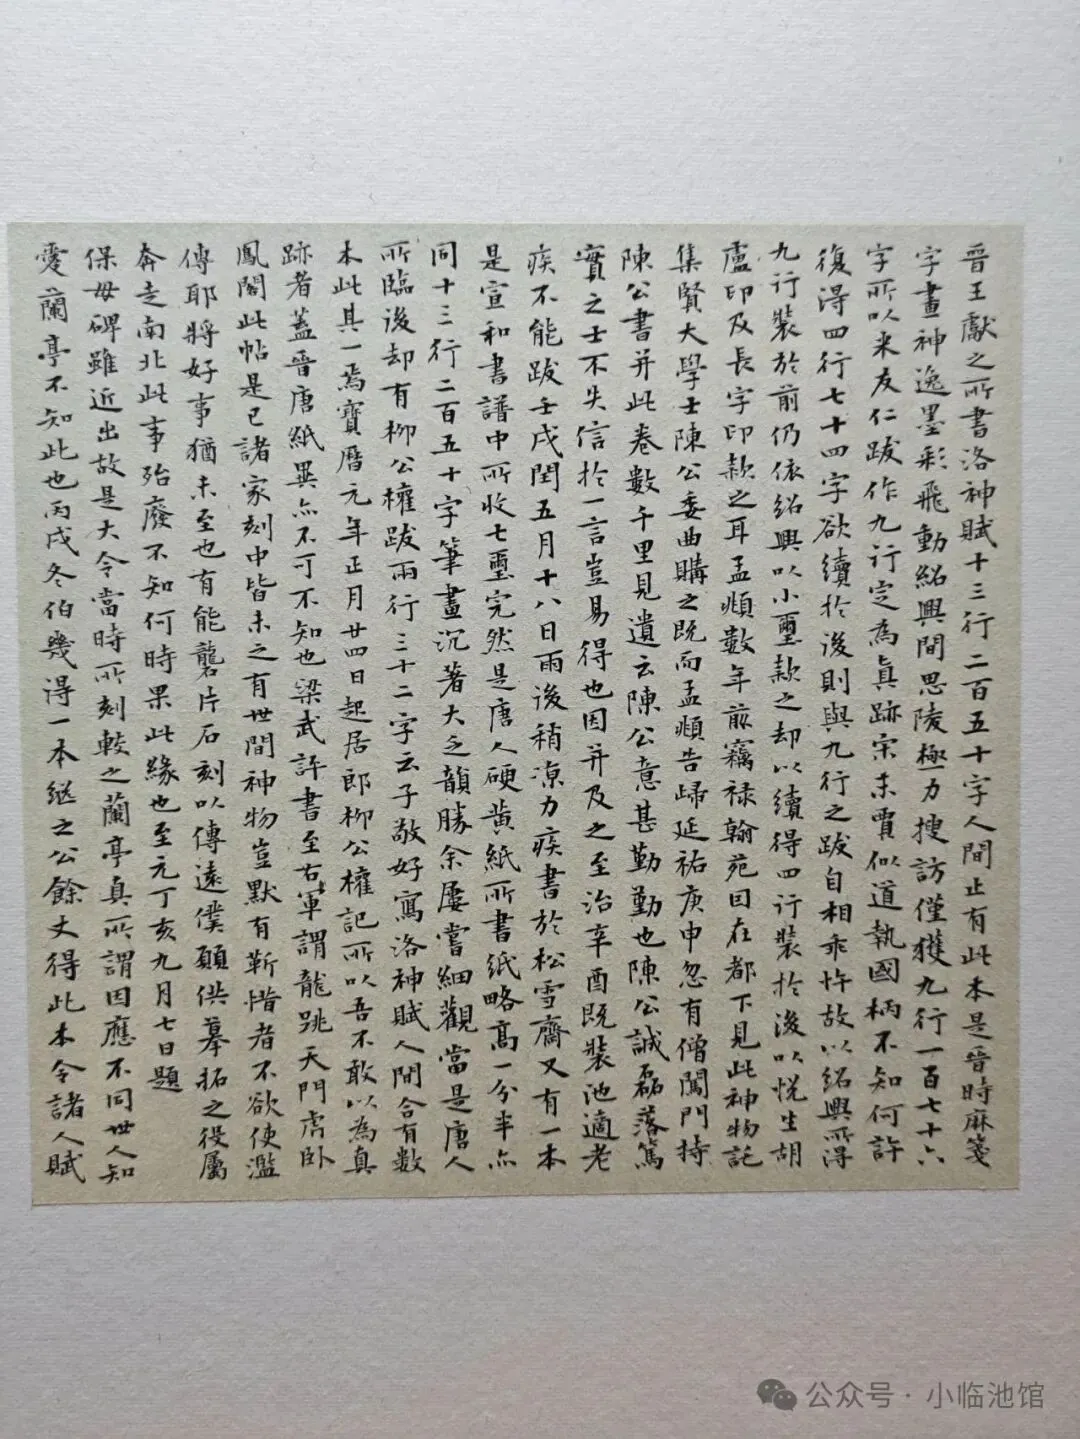 晉王獻之所書洛神賦十三行二百五十字人間止有此本是晉時麻箋
字畫神逸墨彩飛動紹興間思陵極力搜訪僅獲九行一百七十六
字所以米友仁跋作九行定為真跡宋末賈似道執國柄不知何許
復得四行七十四字欲續於後則與九行之跋自相乖忤故以紹興所得
九行裝於前仍依紹興以小璽款之却以續得四行裝於後以悅生胡
盧印及長字印款之耳孟頫數年前竊祿翰苑因在都下見此神物託
集賢大學士陳公委曲購之既而孟頫告歸延祐庚申忽有僧闖門持
陳公書并此卷數千里見遺云陳公意甚勤勤也陳公誠磊落篤
實之士不失信於一言豈易得也因并及之至治辛酉既裝池適老
疾不能跋壬戌閏五月十八日雨後稍涼力疾書於松雪齋又有一本
是宣和書譜中所收七璽完然是唐人硬黃紙所書紙略高一分半亦
同十三行二百五十字筆畫沉著大乏韻勝余屢嘗細觀當是唐人
所臨後却有柳公權跋兩行三十二字云子敬好寫洛神賦人間合有數
本此其一焉寶曆元年正月廿四日起居郎柳公權記所以吾不敢以為真
跡者蓋晉唐紙異亦不可不知也梁武評書至右軍謂龍跳天門虎卧
鳳閣此帖是已諸家刻中皆未之有世間神物豈默有靳惜者不欲使濫
傳耶將好事猶未至也有能礱片石刻以傳遠僕願供摹拓之役屬
奔走南北此事殆廢不知何時果此緣也至元丁亥九月七日題
保母碑雖近出故是大令當時所刻較之蘭亭真所謂因應不同世人知
愛蘭亭不知此也丙戌冬伯幾得一本継之公餘丈得此本令諸人賦
公众号·小临池馆